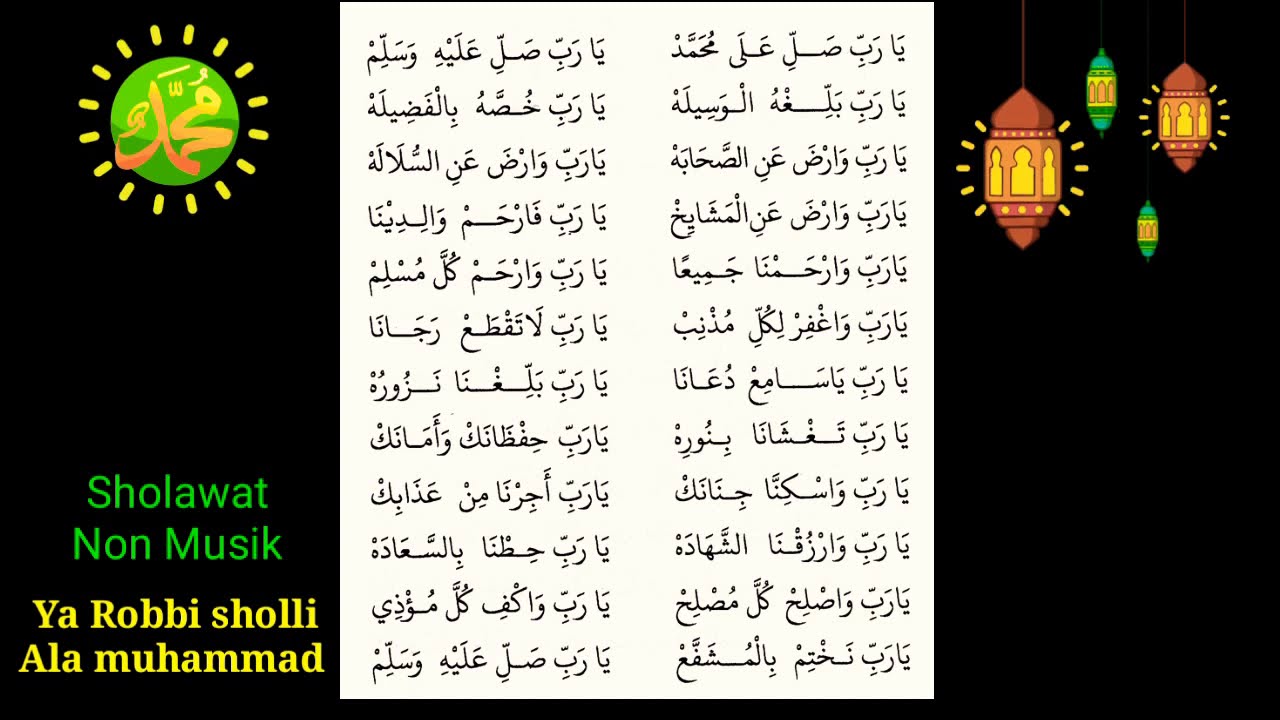 مُحَمَّد
يَا رَبِّ صَلِّ عَلَى مُحَمَّدْ يَا رَبِّ صَلِّ عَلَيْهِ وَسَلِّمْ
يَا رَبِّ بَلِّغْهُ الْوَسِيلَهْ يَا رَبِّ خُصَّهُ بِالْفَضِيلَهْ
يَا رَبِّ وَارْضَ عَنِ الصَّحَابَهْ يَارَبِّ وَارْضَ عَنِ السُّلَالَهْ
يَارَبِّ وَارْضَ عَنِ الْمَشَايِخْ يَا رَبِّ فَارْحَمْ وَالِدِيْنَا
يَارَبِّ وَارْحَمْنَا جَمِيعًا يَا رَبِّ وَارْحَمْ كُلَّ مُسْلِمْ
يَارَبِّ وَاغْفِرْ لِكُلِّ مُذْنِبْ يَا رَبِّ لَاتَقْطَعْ رَجَانَا
يَا رَبِّ يَاسَامِعْ دُعَانَا يَا رَبِّ بَلِّغْنَا نَزُورُهْ
يَا رَبِّ تَغْشَانَا بِنُورِهْ يَارَبِّ حِفْظَانَكْ وَأَمَانَكْ
يَا رَبِّ وَاسْكِنَّا جِنَانَكْ يَارَبِّ أَجِرْنَا مِنْ عَذَابِكْ
يَا رَبِّ وَارْزُقْنَا الشَّهَادَهْ يَا رَبِّ حِطْنَا بِالسَّعَادَهْ
يَارَبِّ وَاصْلِحْ كُلَّ مُصْلِحْ يَا رَبِّ وَاكْفِ كُلَّ مُؤْذِي
يَارَبِّ نَخْتِمْ بِالْمُشَفَّعْ يَا رَبِّ صَلِّ عَلَيْهِ وَسَلِّمْ
Sholawat
Non Musik
Ya Robbi sholli
Ala muhammad